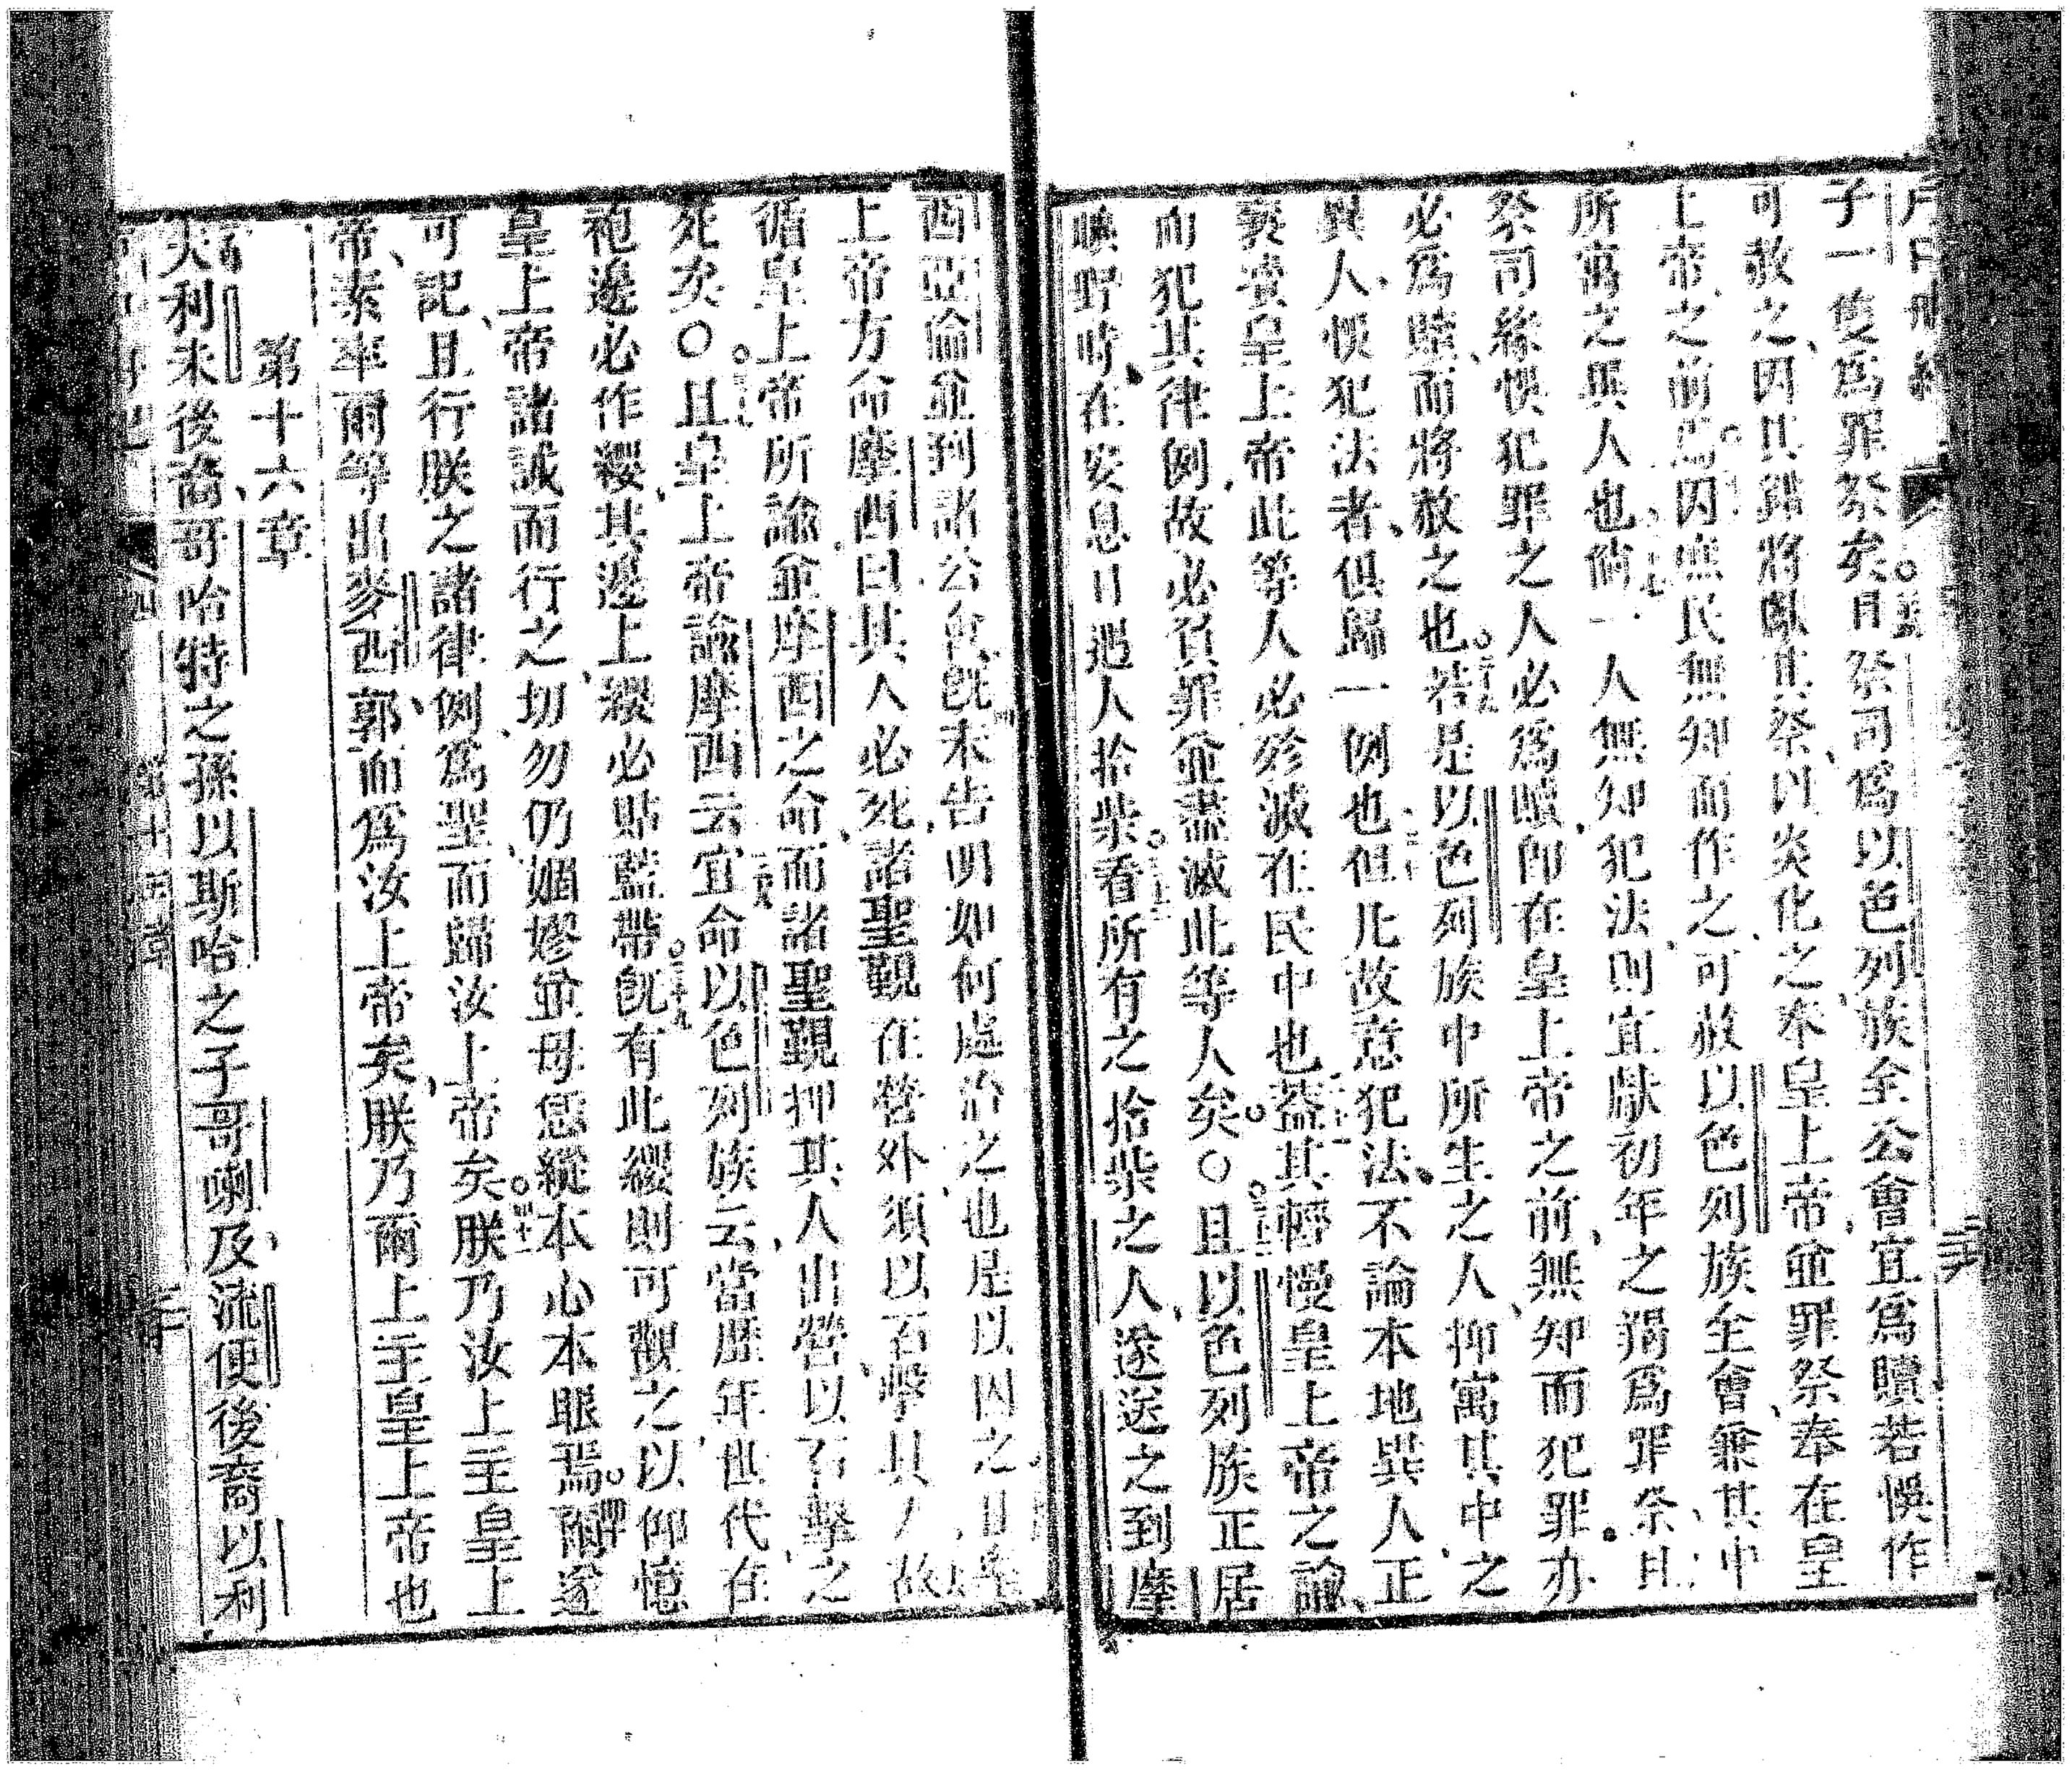 子一隻爲罪祭矣且祭司爲以色列族全公會宜爲贖若悞作
可赦之因其錯將獻其祭以炎化之奉皇上帝並罪祭奉在皇
上帝之前爲因庶民無知而作之可赦以色列族全會兼其中
所寓之異人也倘一人無知犯法則宜獻初年之羯爲罪祭且
祭司緣悞犯罪之人必爲贖卽在皇上帝之前無知而犯罪亦
必爲贖而將赦之也若是以色列族中所生之人抑寓其中之
異人悞犯法者俱歸一例也但凡故意犯法不論本地異人正
褻瀆皇上帝此等人必殄滅在民中也蓋其輕慢皇上帝之諭
而犯其律例故必負罪並盡滅此等人矣〇且以色列族正居
曠野時在安息日遇人拾柴看所有之拾柴之人遂送之到摩
西亞倫並到諸公會旣未告明如何處治之也是以囚之且皇
上帝方命摩西曰其人必死諸聖觀在營外須以石擊其人故
循皇上帝所諭並摩西之命而諸聖觀抻其人出營以石擊之
死矣〇且皇上帝諭摩西云宜命以色列族云當歷年世代在
袍邊必作繸其邊上繸必貼藍帶旣有此繸則可觀之以仰憶
皇上帝諸誡而行之切勿仍媚嫪並毋恁縱本心本眼焉爾遂
可記且行朕之諸律例爲聖而歸汝上帝矣朕乃汝上主皇上
帝素率爾等出麥西郭而爲汝上帝矣朕乃爾上主皇上帝也
第十六章
夫利未後裔哥哈特之孫以斯哈之子哥喇及流便後裔以利